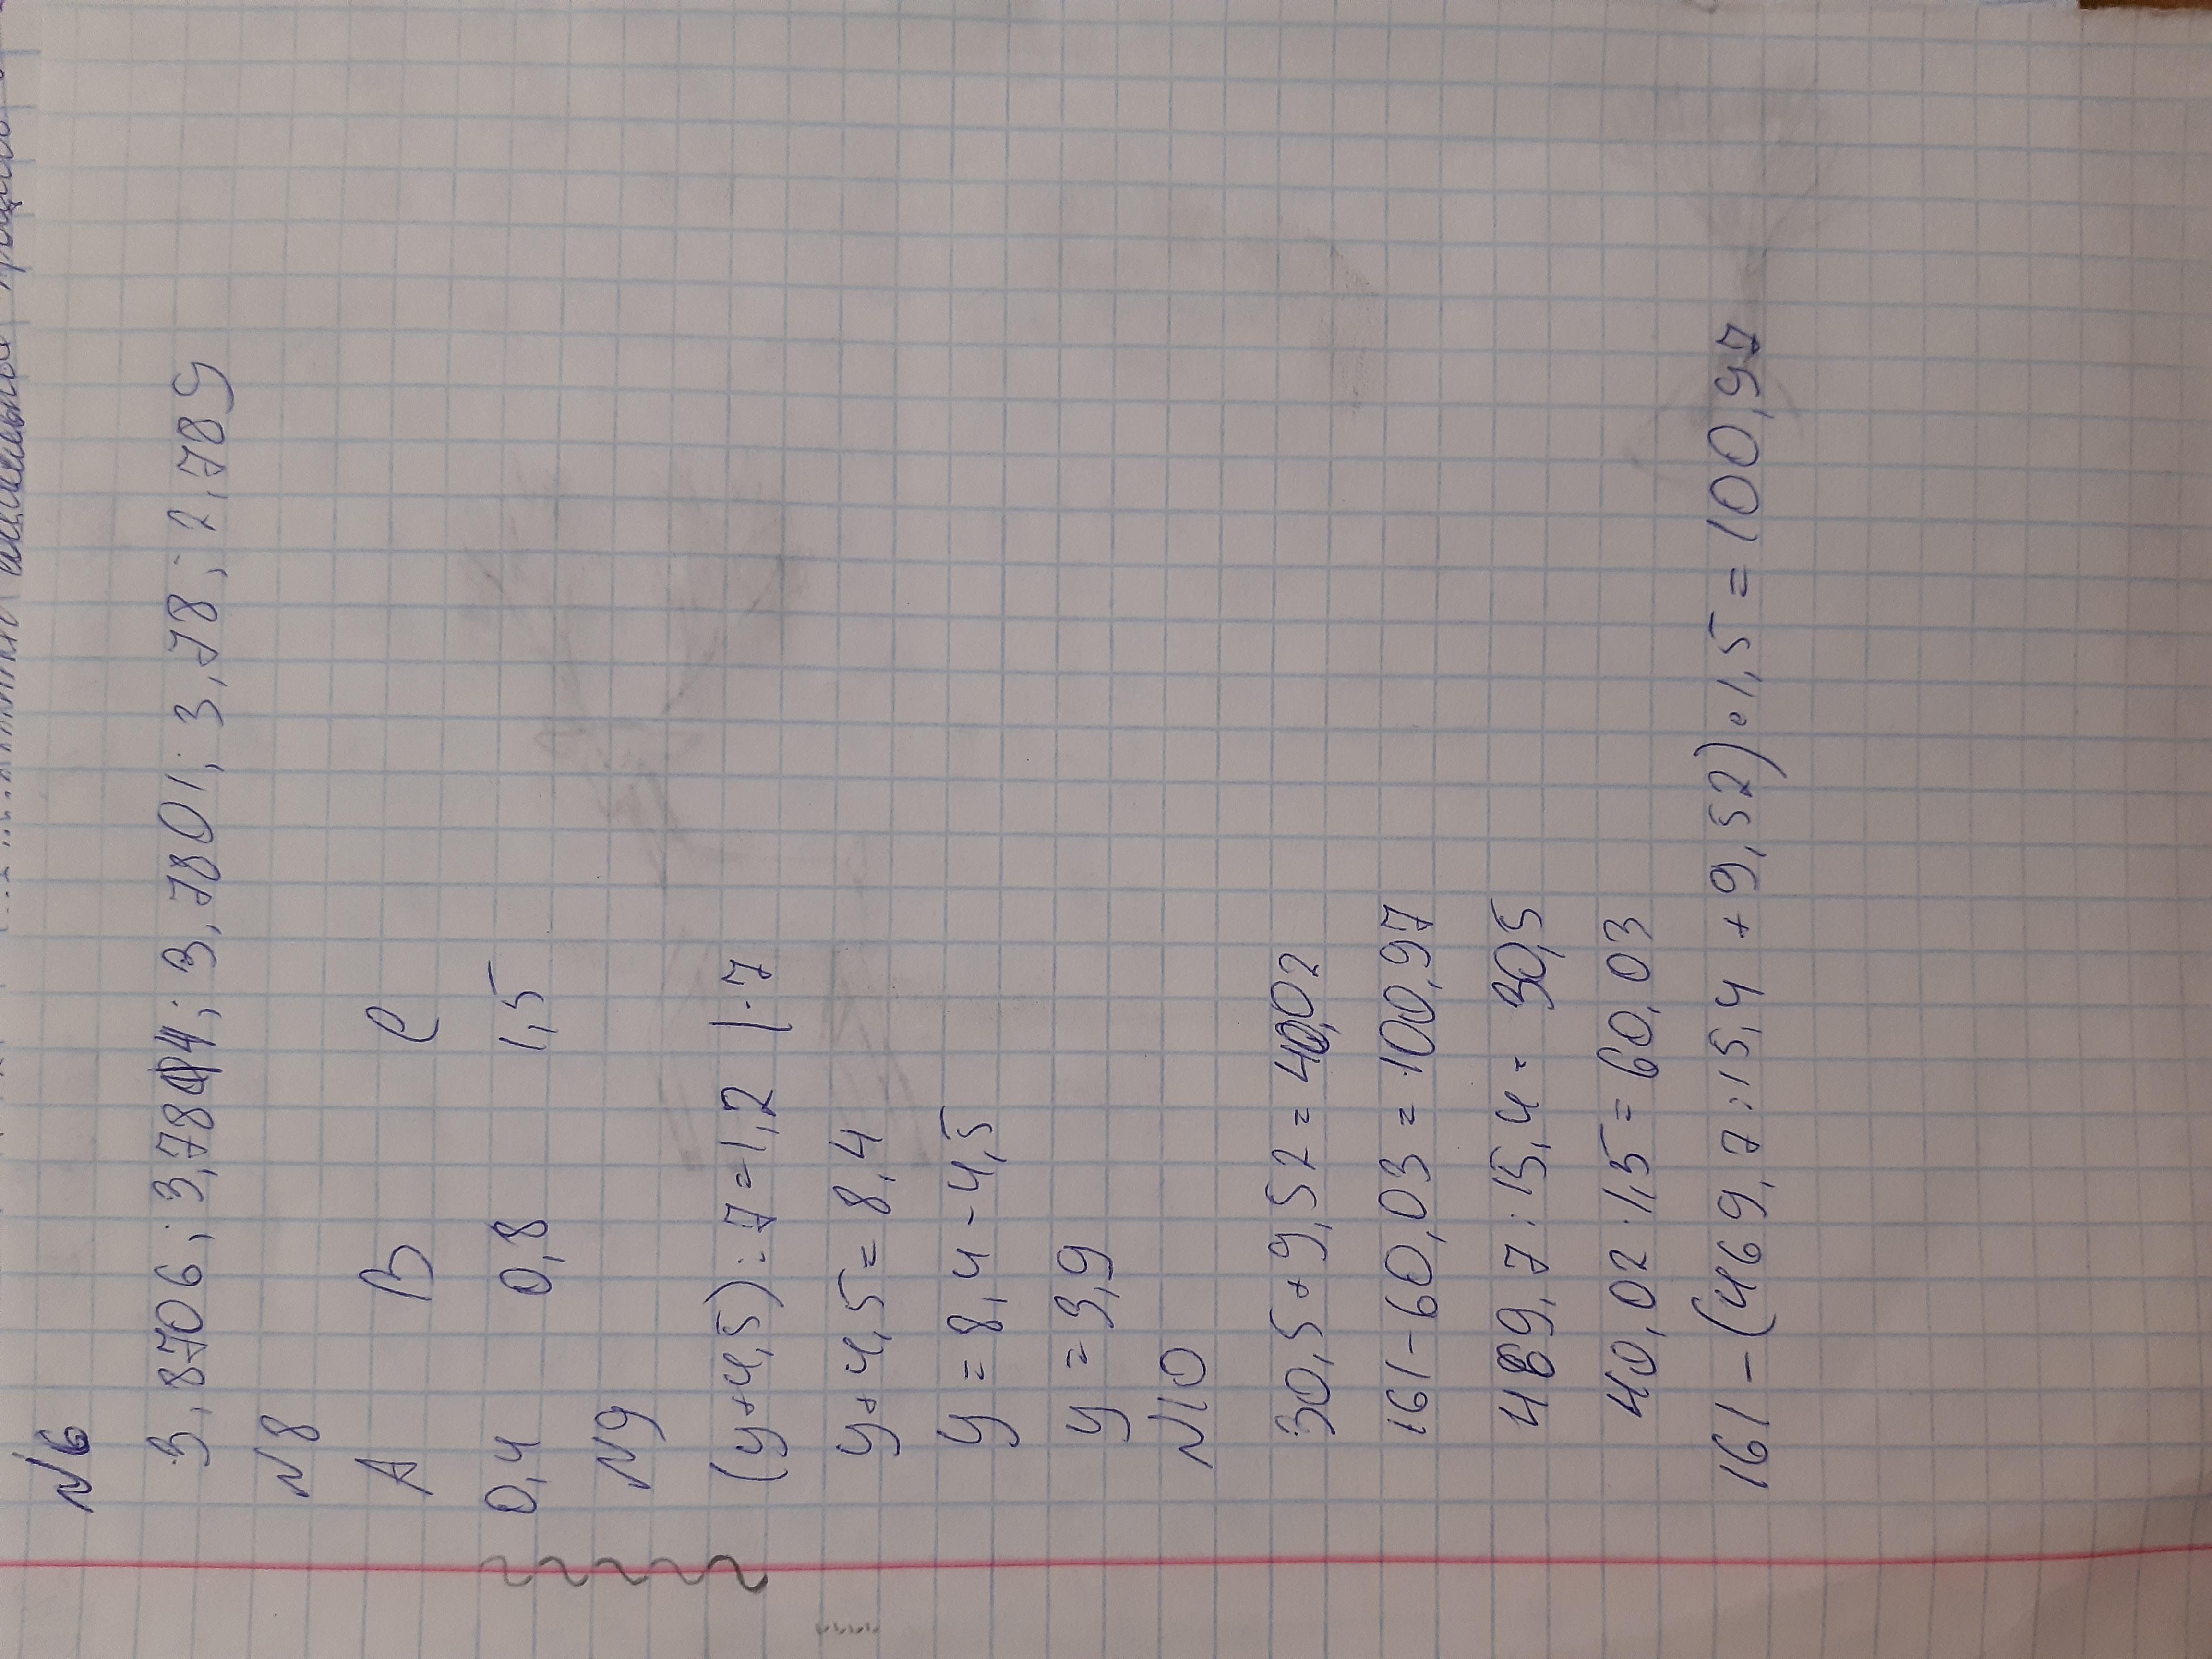 N6
3,8706; 3,7844; 3,7801; 3,78; 2,789
N8
A B C
0,4 0,8 1,5
N9
(y+4,5):7=1,2 |·7
y+4,5=8,4
y=8,4-4,5
y=3,9
N10
30,5+9,52=40,02
161-60,03=100,97
469,7:15,4=30,5
40,02·1,5=60,03
161-(469,7:15,4+9,52)·1,5=100,97